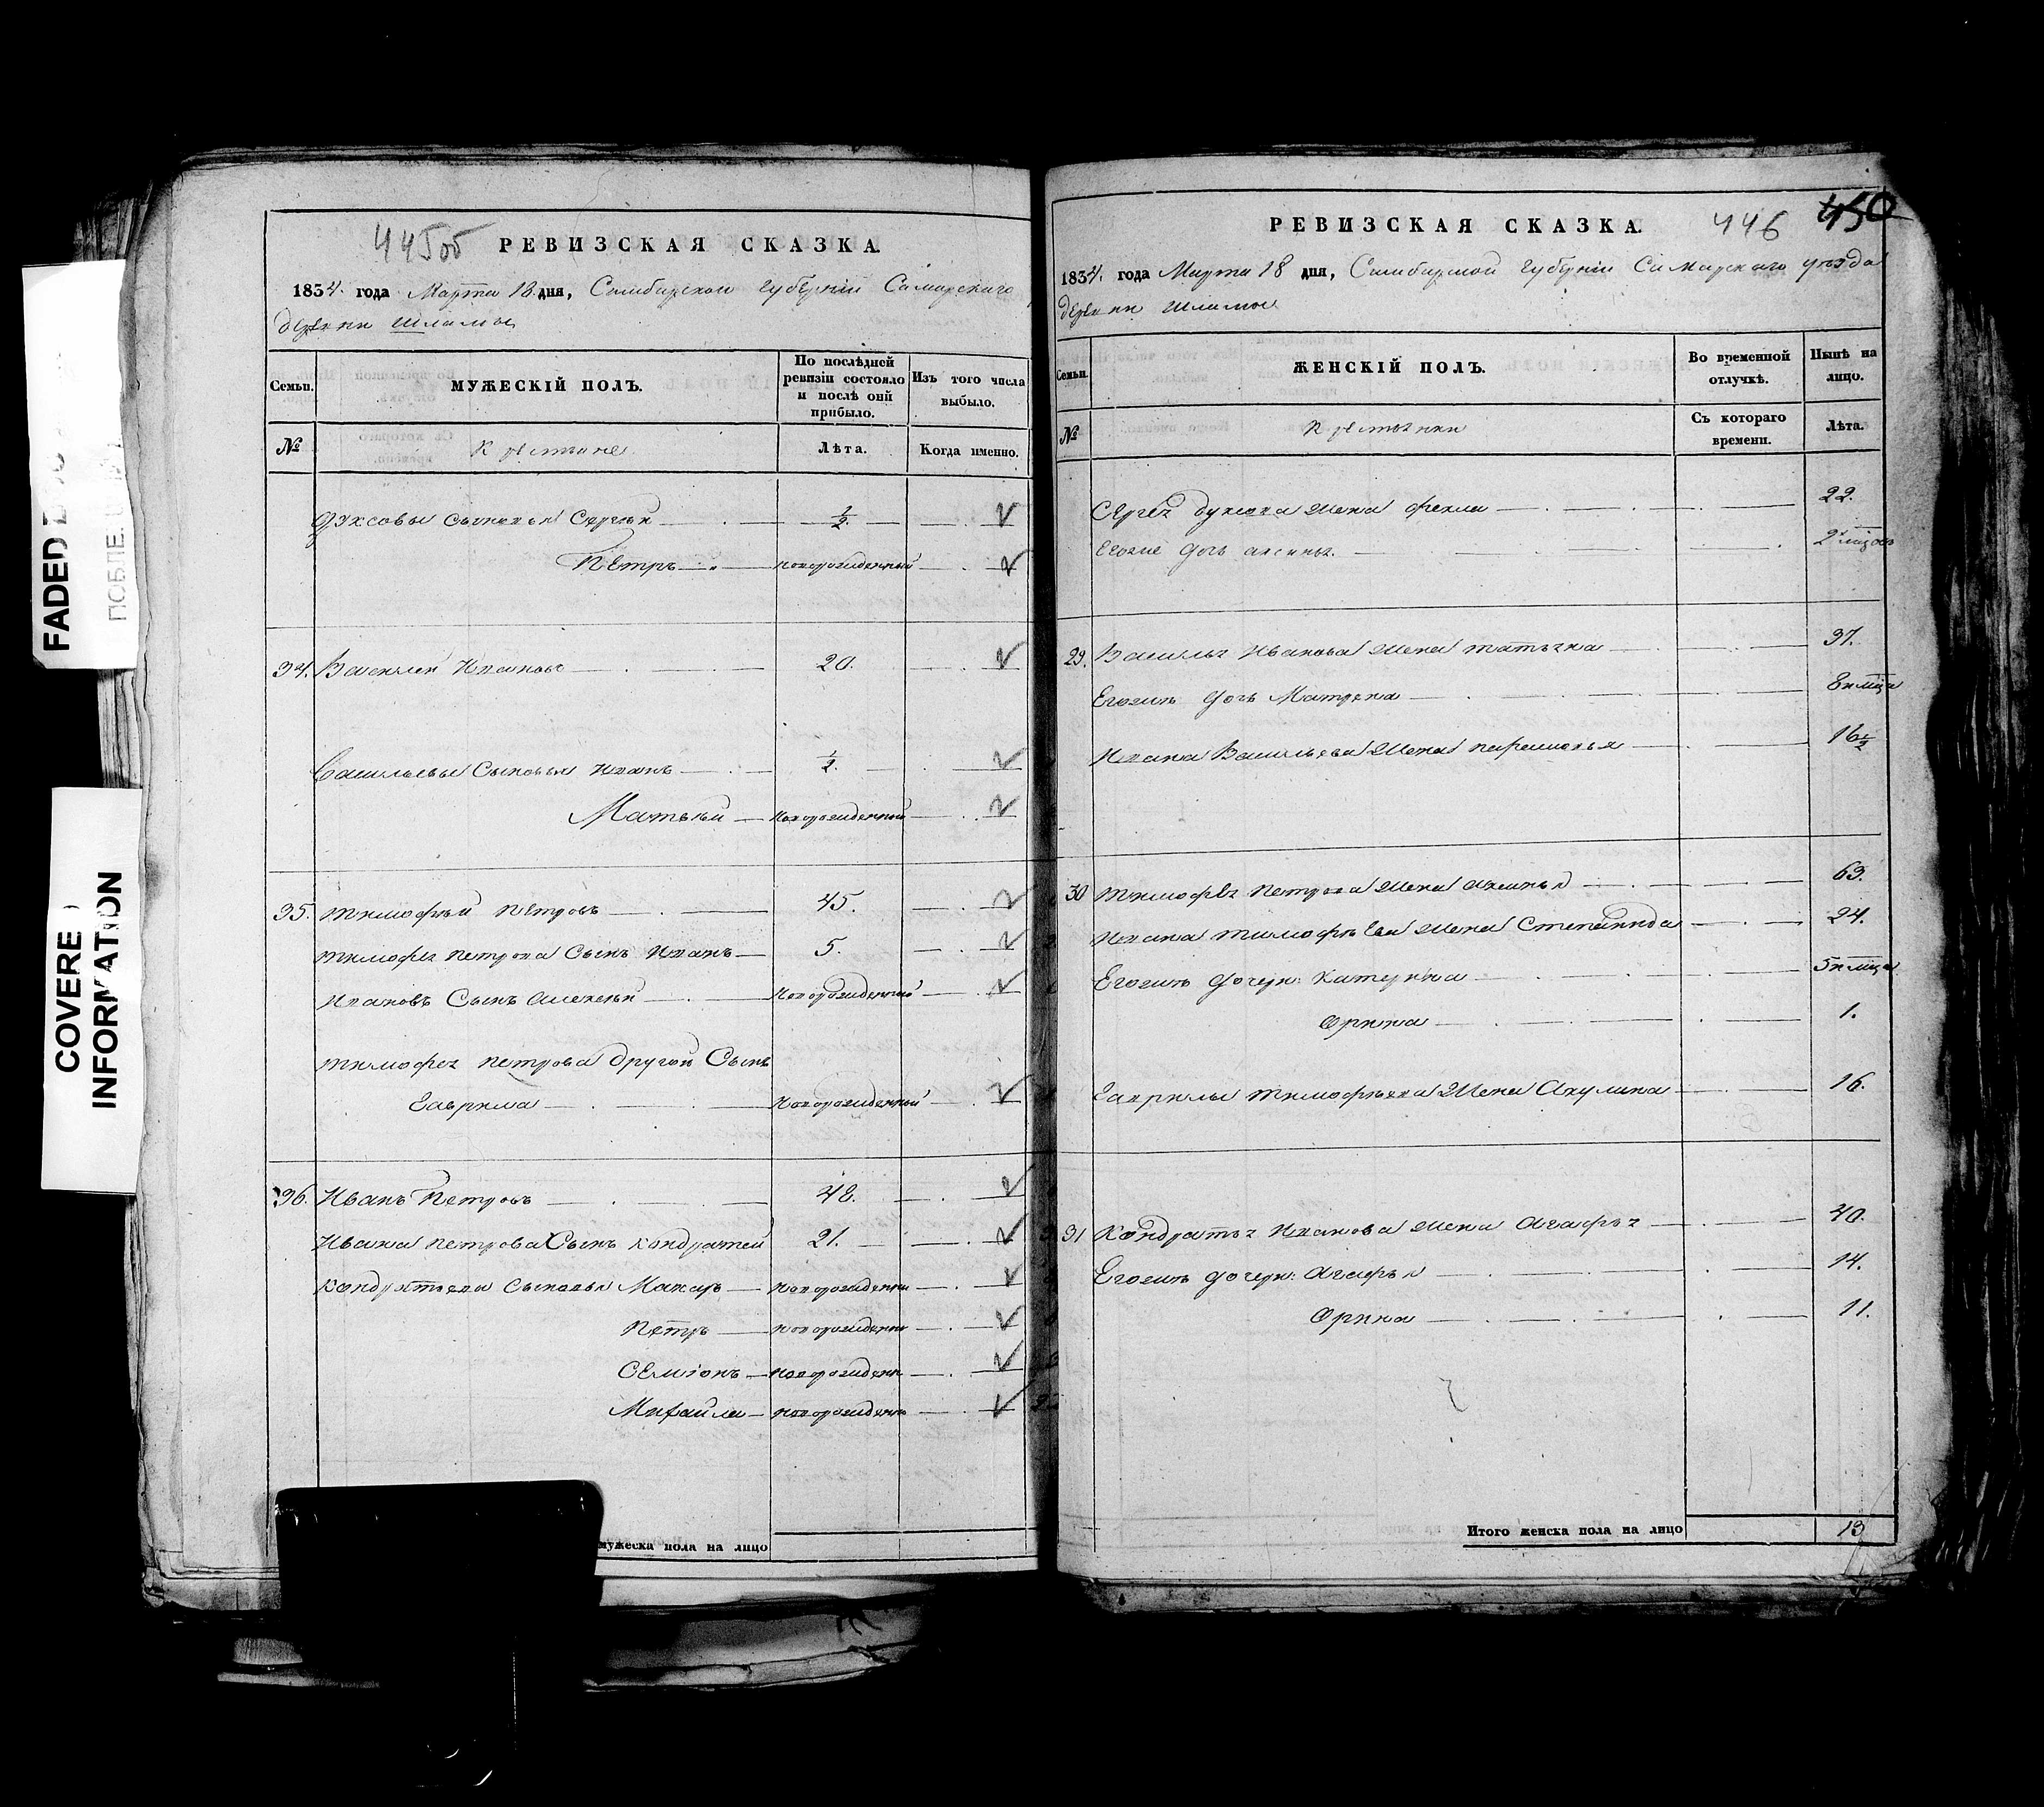 445об
РЕВИЗСКАЯ СКАЗКА.
1834. года Марта 18. дня, Симбирской губерніи Самарскаго
деревни Шламы
Семьи.
МУЖЕСКІЙ ПОЛЪ.
По послѣдней ревизіи состояло и послѣ оній прибыло.
Изъ того числа выбыло.
№
Крестьяне
Лѣта.
Когда именно.
сыновья Сергей ½
Петръ новорожденный
34. Василей Ивановъ 20.
Васильевы Сыновья Иванъ ½.
Матвей новорожденной
35. Тимофей Петровъ 45.
Тимофея Петрова Сынъ Иванъ 5.
Ивановъ Сынъ Алексей новорожденный
Тимофея Петрова другой Сынъ
Гаврила новорожденный
36. Иванъ Петровъ 48.
Ивана Петрова Сынъ Кондратей 21.
Кондратьева Сыновья Макаръ новорожденны
Петръ новорожденны
Семіонъ новорожденн
Михайла новорожденн
мужеска пола на лицо
РЕВИЗСКАЯ СКАЗКА.
446
450
1834. года Марта 18 дня, Симбирской губерніи Самарскаго уезда
деревни Шламы
Семьи.
ЖЕНСКІЙ ПОЛЪ.
Во временной отлучкѣ.
Нынѣ на лицо.
№
Крестьянки
Съ котораго времени.
Лѣта.
Сергея жена Фекла 22.
Евоже дочь Аксинья. 2
29. Василья Иванова Жена Татьяна 37.
Евожъ дочь Матрена 8
Ивана Васильева Жена Парасковья 16½
30 Тимофея Петрова Жена Аксинья 63.
Ивана Тимофеева Жена Степанида 24.
Евожъ дочери: Катерина 5
Орина 1.
Гаврилы Тимофеева Жена Акулина 16.
31 Кондратья Иванова Жена Агафья 40.
Евожъ дочери: Агафья 14.
Орина 11.
Итого женска пола на лицо 13
FADED
COVERE
INFORMATION